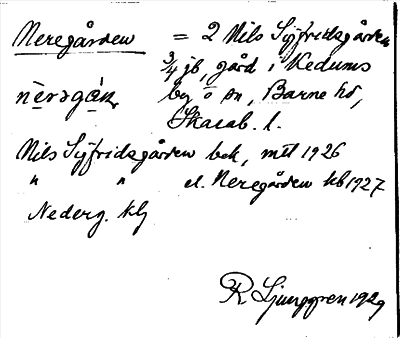 Neregården = 2 Nils Syfridsgården
3/4 jb, gård i Kedums
nèrəgá̀ɳ by o sn, Barne hd,
Skarab. l.
Nils Syfridsgården bek, mtl 1926
" " el. Neregården kb 1927
Nederg. klj
R Ljunggren 1929